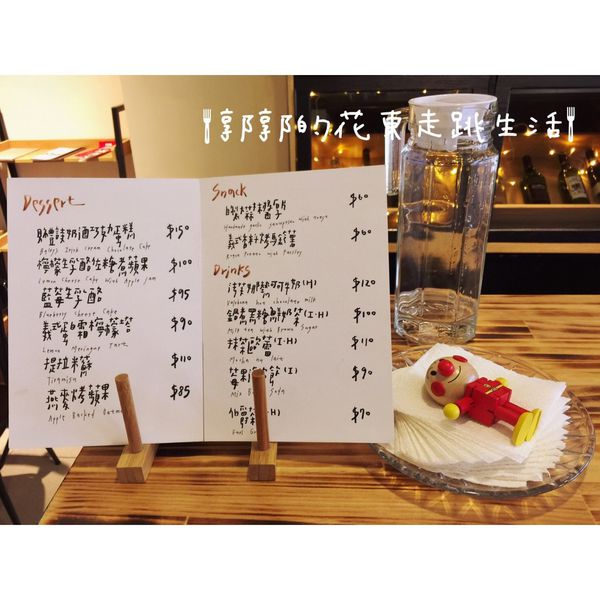 郭郭的花東走跳生活
Dessert
貝禮詩奶酒巧克力蛋糕 $150
Baileys Irish Cream Chocolate Cake
檸檬生乳酪佐糖煮蘋果 $100
Lemon Cheese Cake with Apple jam
藍莓生乳酪 $95
Blueberry Cheese Cake
義式蛋白霜檸檬塔 $90
Lemon Meringue Tart
提拉米蘇 $110
Tiramisu
燕麥烤蘋果 $85
Apple Baked Oatme
Snack
$60
$60
Drinks
(H) $120
Valrhona hot chocolate milk
鍋煮黑糖鮮奶茶(I.H) $100
Milk tea with Brown Sugar
抹茶歐蕾(I.H) $110
Matcha au lait
莓果 飲(I) $90
Mix B Soda
伯爵茶 H) $70
Earl G